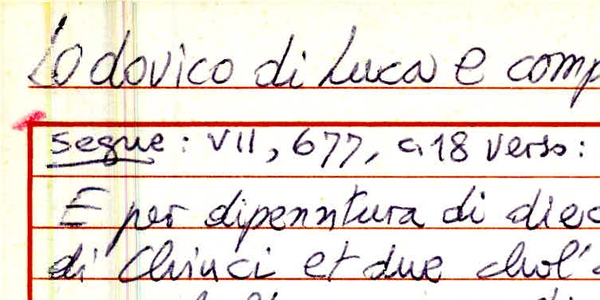 Lodovico di Luca e comp
segue: VII, 677, c. 18 verso:
E per dipenntura di diec
di Chinci et due chol'